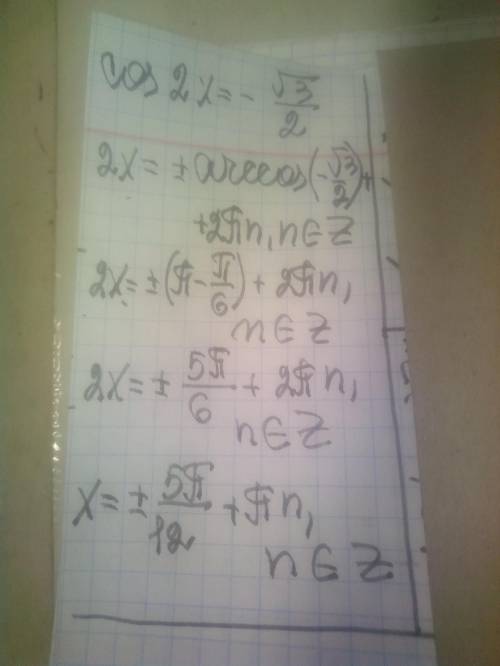 cos 2x = - √3/2
2x = ± arccos(-√3/2) +
+2πn, n ∈ Z
2x = ±(π - π/6) + 2πn,
n ∈ Z
2x = ± 5π/6 + 2πn,
n ∈ Z
x = ± 5π/12 + πn,
n ∈ Z